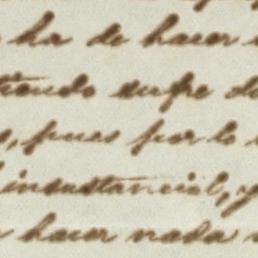 ha de hacer
tiendo supe d
, pues por lo
insustancial, y
hacer nada